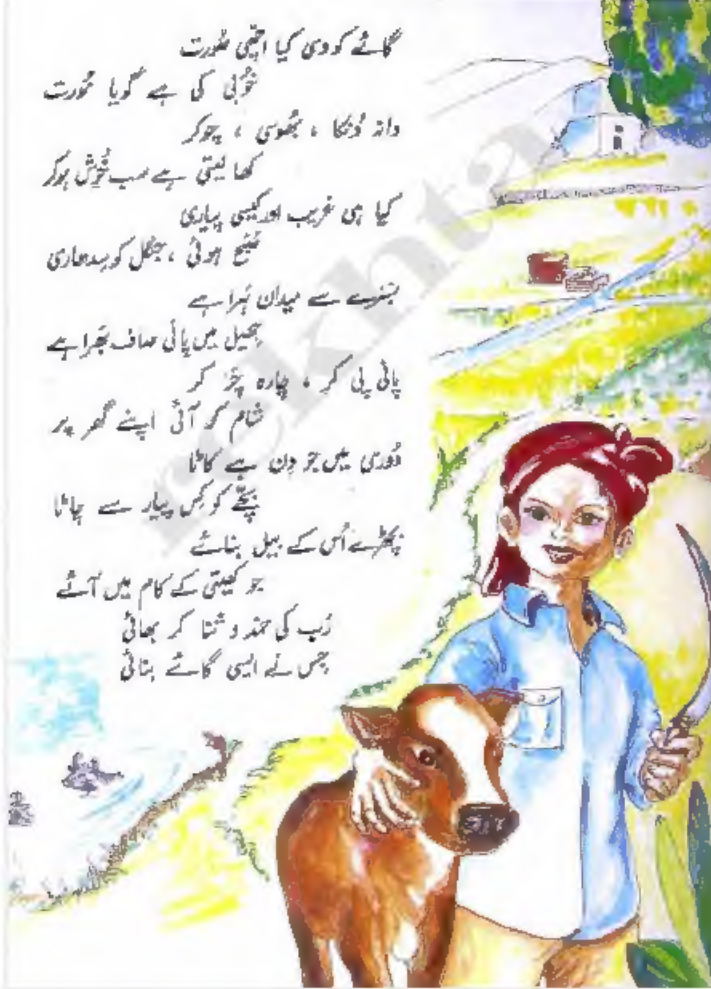 گائے کو دی کیا اچھی صُورت
خُوبی کی ہے گویا مُورت
دانہ دُنکا ، بُھوسی ، چوکر
کھا لیتی ہے سب خُوش ہوکر
کیا ہی غریب اور کیسی پیاری
صُبح ہوئی ، جنگل کو سِدھاری
سَبزے سے میدان ہَرا ہے
جھیل میں پانی صاف بَھرا ہے
پانی پی کر ، چارہ چَر کر
شام کو آئی اپنے گھر پر
دُوری میں جو دِن ہے کاٹا
بچّے کو کِس پیار سے چاٹا
بچھڑے اُس کے بیل بنائے
جو کھیتی کے کام میں آئے
رَب کی حمد و ثنا کر بھائی
جِس نے ایسی گائے بنائی
rekhta